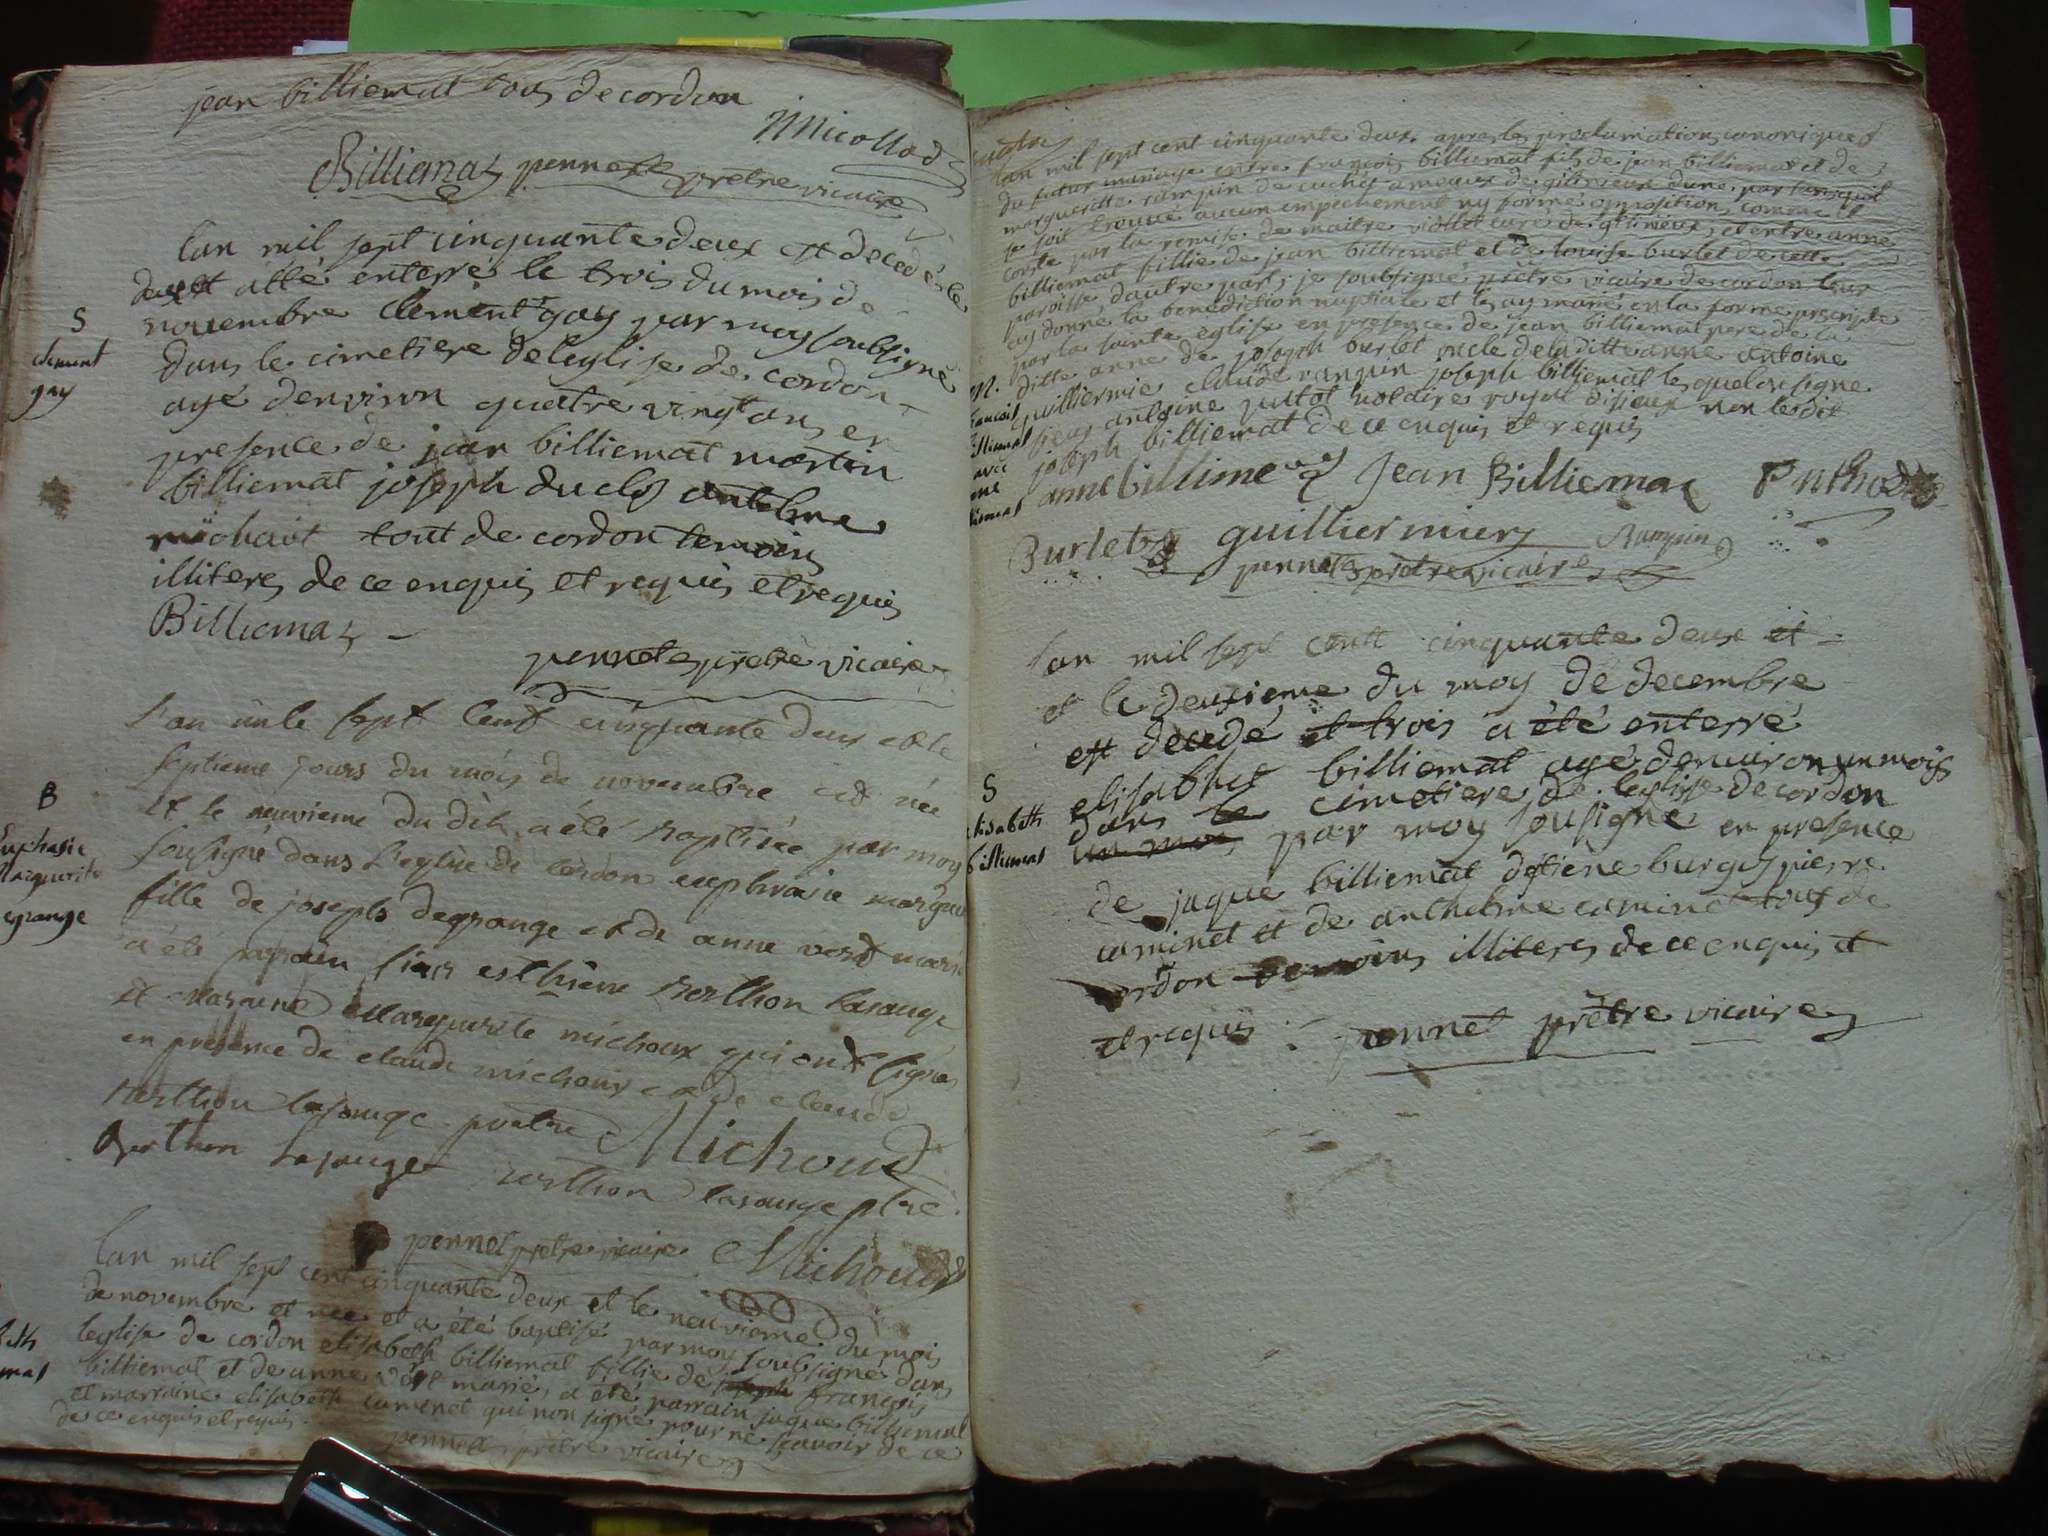 jean billiemat tous de cordon
Micollod
Billiemaz pennet pretre vicaire
lan mil sept cinquante deux est decedé le
deux et atté enterré le trois du mois de
novembre clement gay par moy soubsigné
dans le cimetiere de leglise de cordon
agé denviron quatre vingt ans en
presence de jean billiemat martin
billiemat joseph duclos antelme
michait tout de cordon temoins
illiteres de ce enquis et requis et requis
Billiemaz
pennet prêtre vicaire
S
clement
gay
L'an mile sept cent cinquante deux et le
septieme jours du mois de novembre est née
et le neuvieme du dit a été baptisée par moy
sousigné dans l'eglise de cordon euphrasie marguerite
fille de joseph degrange et de anne vert marié
a été parain sieur esthiene berthon lasauge
et maraine marguerite michoux qui ont signés
en presence de claude michoux et de claude
berthon lasauge pretre Michoud
Berthon Lasauge berthon lasauge ptre
pennet pretre vicaire Michoud
B
Euphasie
Marguerite
egrange
lan mil sept cent cinquante deux et le neuvieme du mois
de novembre et née et a été baptisé par moy soubsigné dans
leglise de cordon elisabeth billiemat fillie de joseph françois
billiemat et de anne vert marié, a été parrain jaque billiemat
et marraine elisabeth caminet qui non signé pour ne scavoir de ce
de ce enquis et requis
pennet prêtre vicaire
beth
mat
lan mil sept cent cinquante deux apres les proclamations canoniques
du futur mariage entre françois billiemat fils de jean billiemat et de
margueritte rampin de cuchet ameaux de glirieux dune part sans quil
se soit trouvé aucun empechement ny formé opposition, comme il
conste par la remise de maitre viollet curé de glirieux, et entre anne
billiemat fillie de jean billiemat et de louise burlet de cette
paroisse dautre part, je soubsigné prêtre vicaire de cordon leur
ay donné la benediction nuptiale et les ay marié en la forme prescripte
par la sainte eglise en presence de jean billiemat pere de la
ditte anne de joseph burlet oncle de la ditte anne antoine
guilliermie claude rampin joseph billiemat lesquel on signe
sieur antoine jultot notaire royal disieux non le dit
joseph billiemat de ce enquis et requis
anne billime Jean Billiemaz Puthod
Burlet guilliermier Rampin
pennet prêtre vicaire
M.
francois
billiemat
avec
ane
billiemat
lan mil sept centt cinquante deux et
et le deuxieme du moy de decembre
est decedé et trois a été enterré
elisabhet billiemat agé denviron un mois
dans le cimetiere de leglise de cordon
un mois par moy sousigné en presence
de jaque billiemat détiene burgos pierre
caminet et de anthelme caminet tous de
cordon temoins illiteres de ce enquis et
et requis pennet prêtre vicaire
S
elisabeth
billiemat